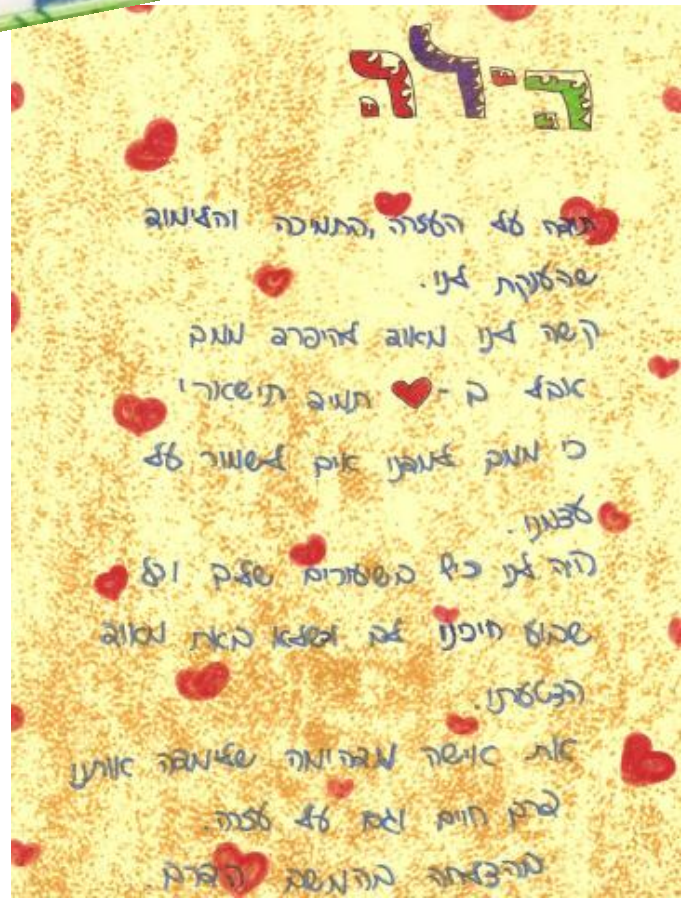 הילה
תודה על העזרה, התמיכה והלימוד
שהענקת לנו.
קשה לנו מאוד להיפרד ממך
אבל ב - ❤ תמיד תישארי
כי ממך למדנו איך לשמור על
עצמנו.
היה לנו כיף בשעורים שלך וכל
שבוע חיכנו לך וכשלא באת מאוד
הצטערנו.
את אישה מדהימה שלימדה אותנו
דרך חיים וגם על עזרה.
בהצלחה בהמשך הדרך